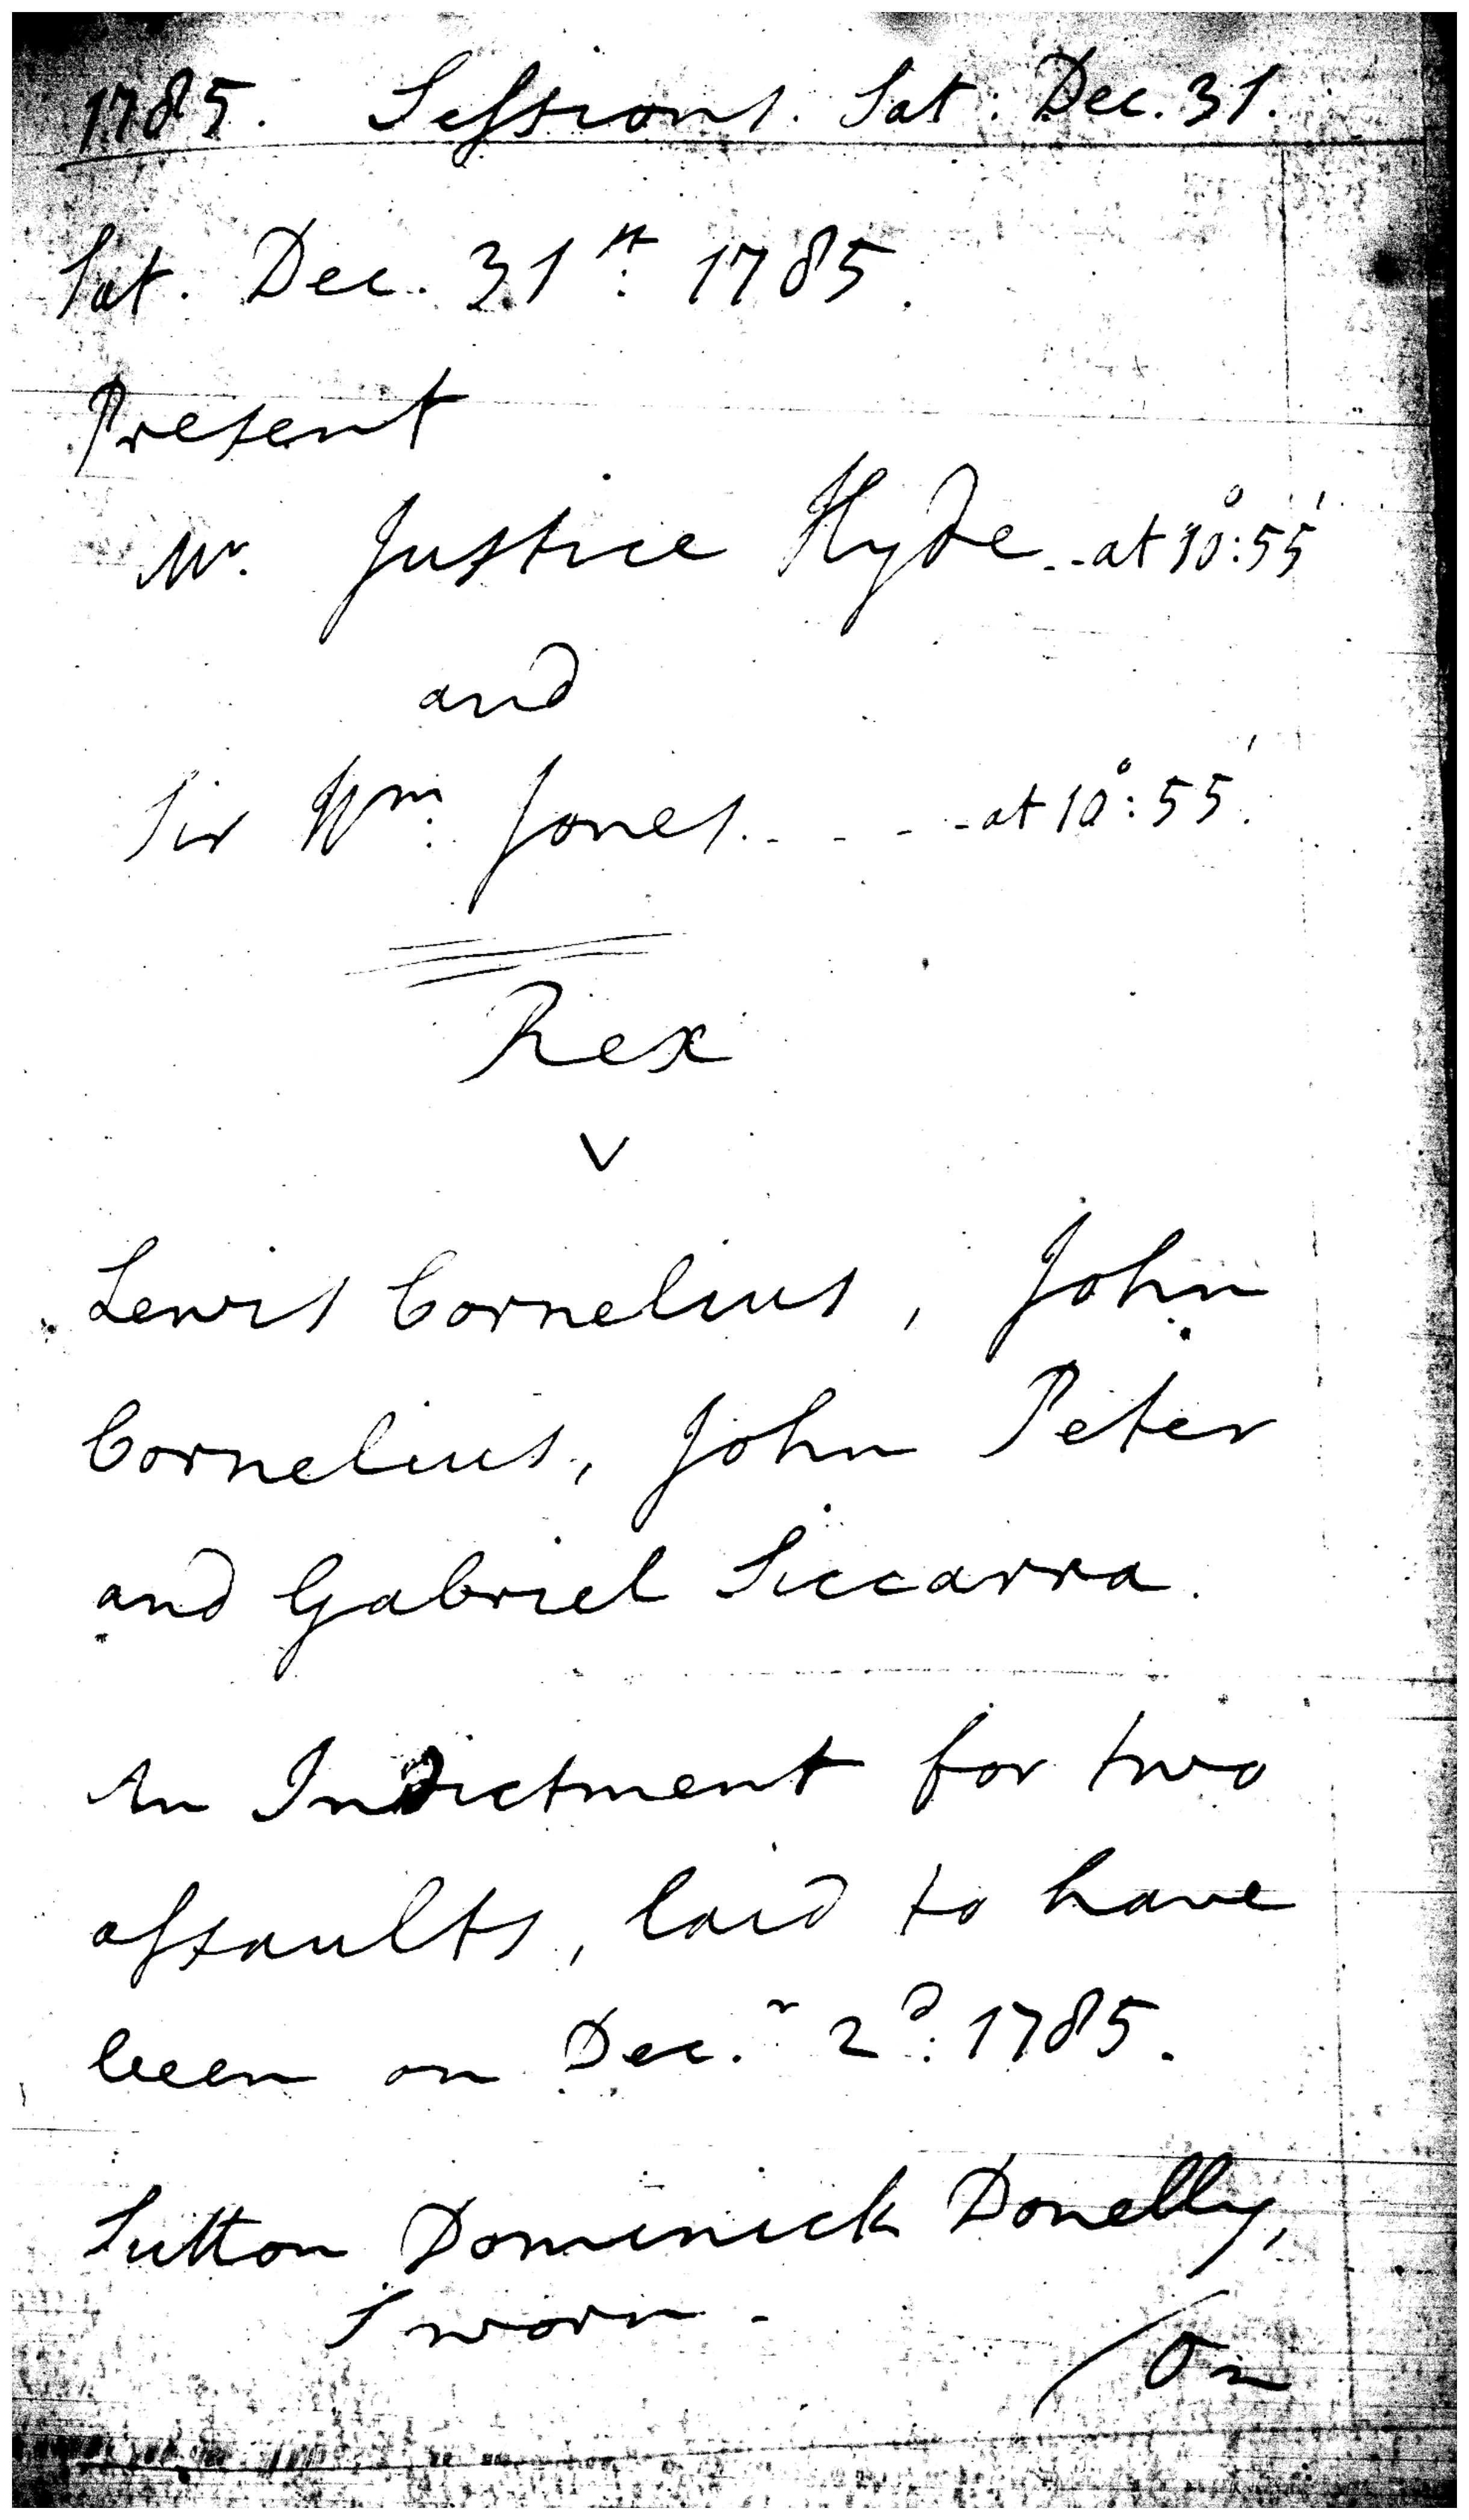 1785. Sessions. Sat: Dec. 31.
Sat. Dec. 31st: 1785.
Present
Mr. Justice Hyde - - at 10°: 55'
and
Sir Wm: Jones. - - - - at 10°: 55'.
Rex
v
Lewis Cornelius, John
Cornelius, John Peter
and Gabriel Siccarra.
An Indictment for two
assaults, laid to have
been on Dec.r 2d: 1785.
Sutton Dominick Donelly,
Sworn -
/On